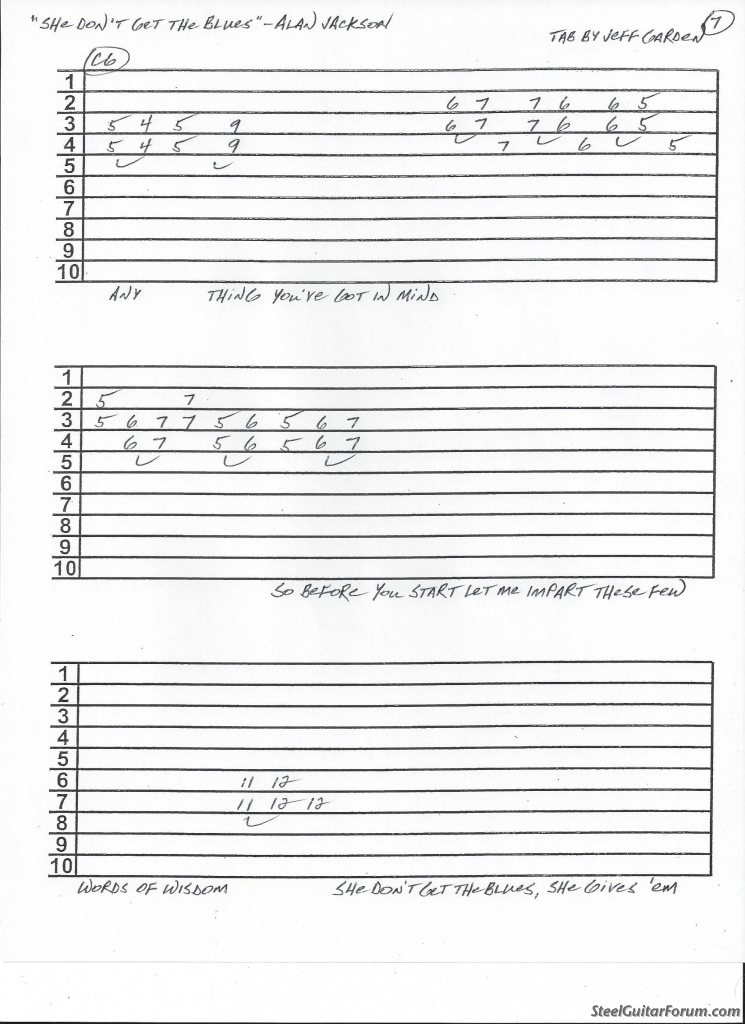 "SHE DON'T GET THE BLUES" - ALAN JACKSON
7
TAB BY JEFF GARDEN
C6
1
2 6 7 7 6 6 5
3 5 4 5 9 6 7 7 6 6 5
4 5 4 5 9 7 6 5
5
6
7
8
9
10
ANY THING YOU'VE GOT IN MIND
1
2 5 7
3 5 6 7 7 5 6 5 6 7
4 6 7 5 6 5 6 7
5
6
7
8
9
10
SO BEFORE YOU START LET ME IMPART THESE FEW
1
2
3
4
5
6 11 12
7 11 12 12
8
9
10
WORDS OF WISDOM SHE DON'T GET THE BLUES, SHE GIVES 'EM
SteelGuitarForum.com